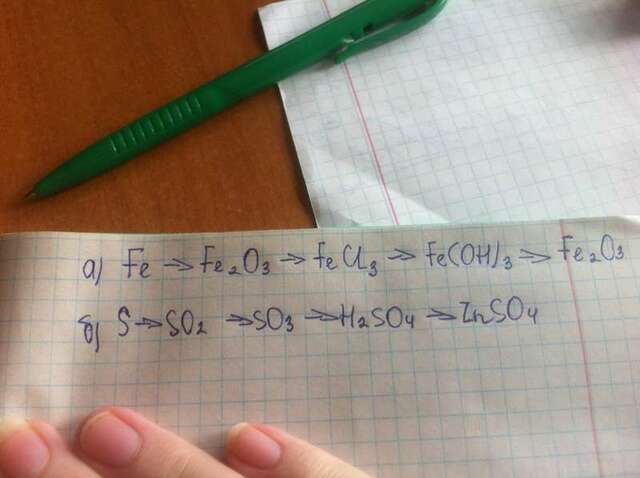 а) Fe → Fe₂O₃ → FeCl₃ → Fe(OH)₃ → Fe₂O₃
б) S → SO₂ → SO₃ → H₂SO₄ → ZnSO₄